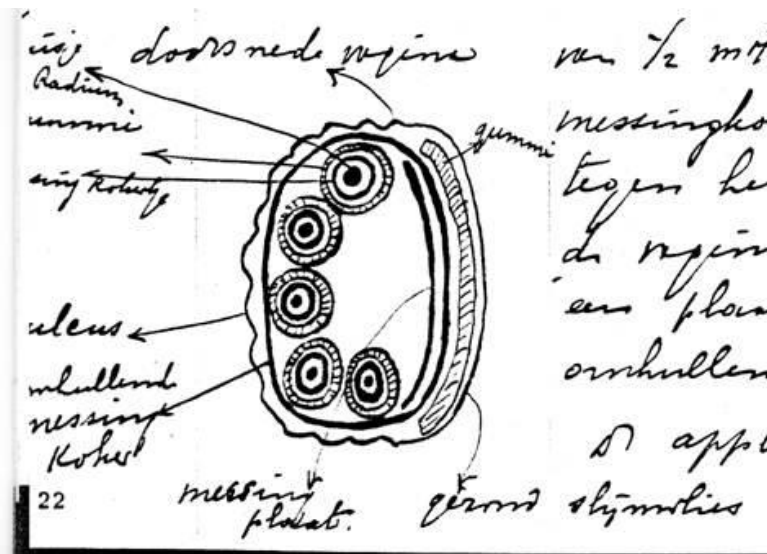 doorsnede vagina
Radium
gummi
ulcus
omhullend
messing
Koker
messing
plaat.
gezond slijmvlies
van 1/2 m
messingko
tegen he
de vagin
een plaa
omhullen
of appl
22